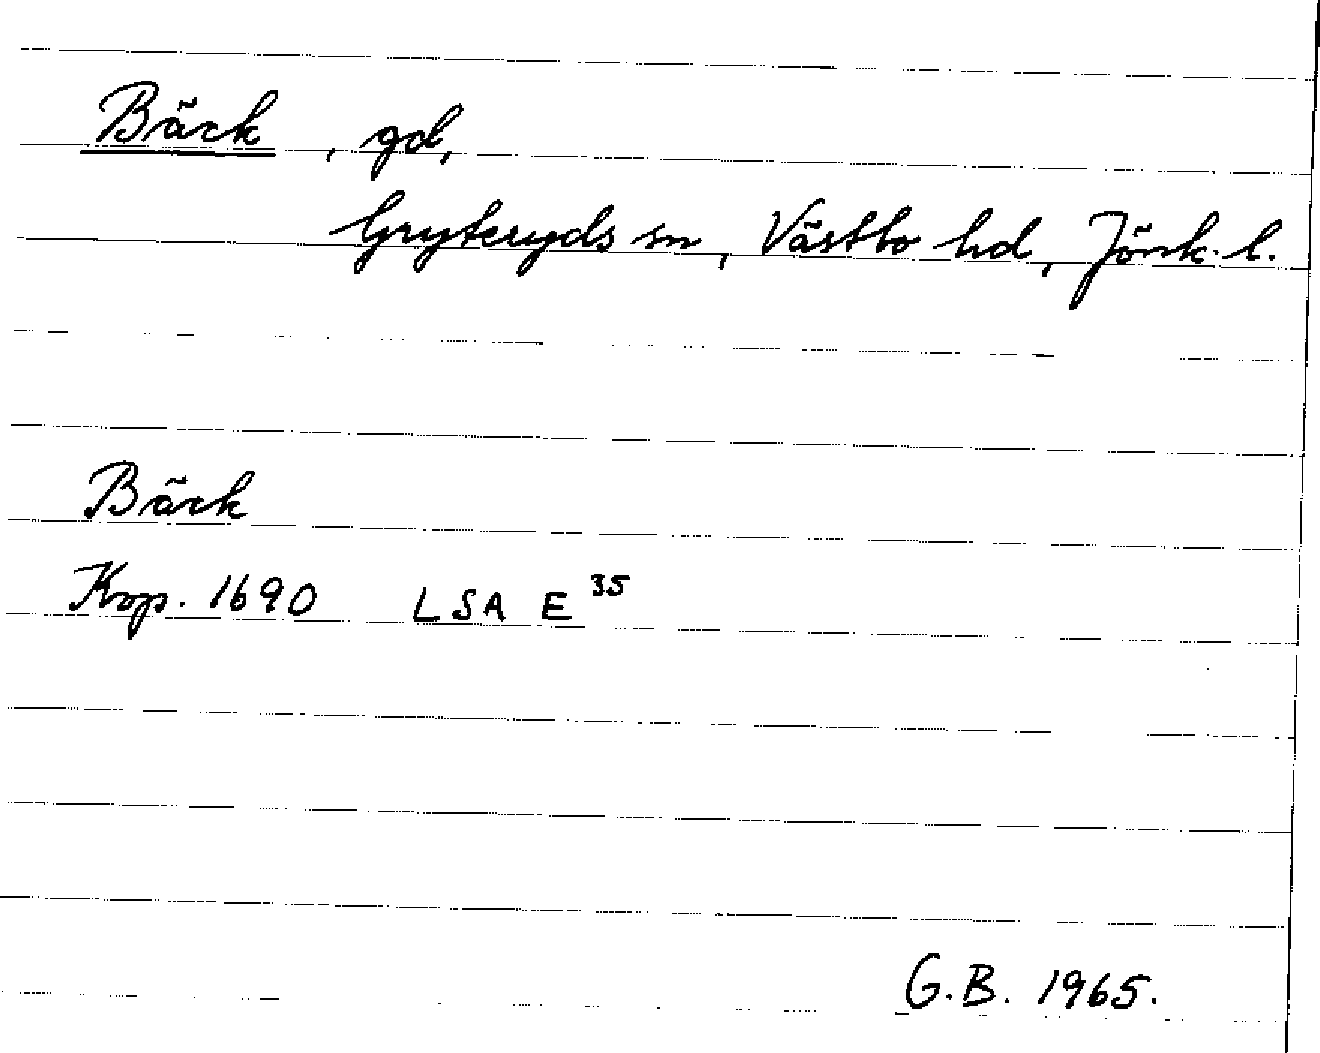 Bäck, gd,
Gryteryds sn, Västbo hd, Jönk. l.
Bäck
Kop. 1690 LSA E 35
G.B. 1965.